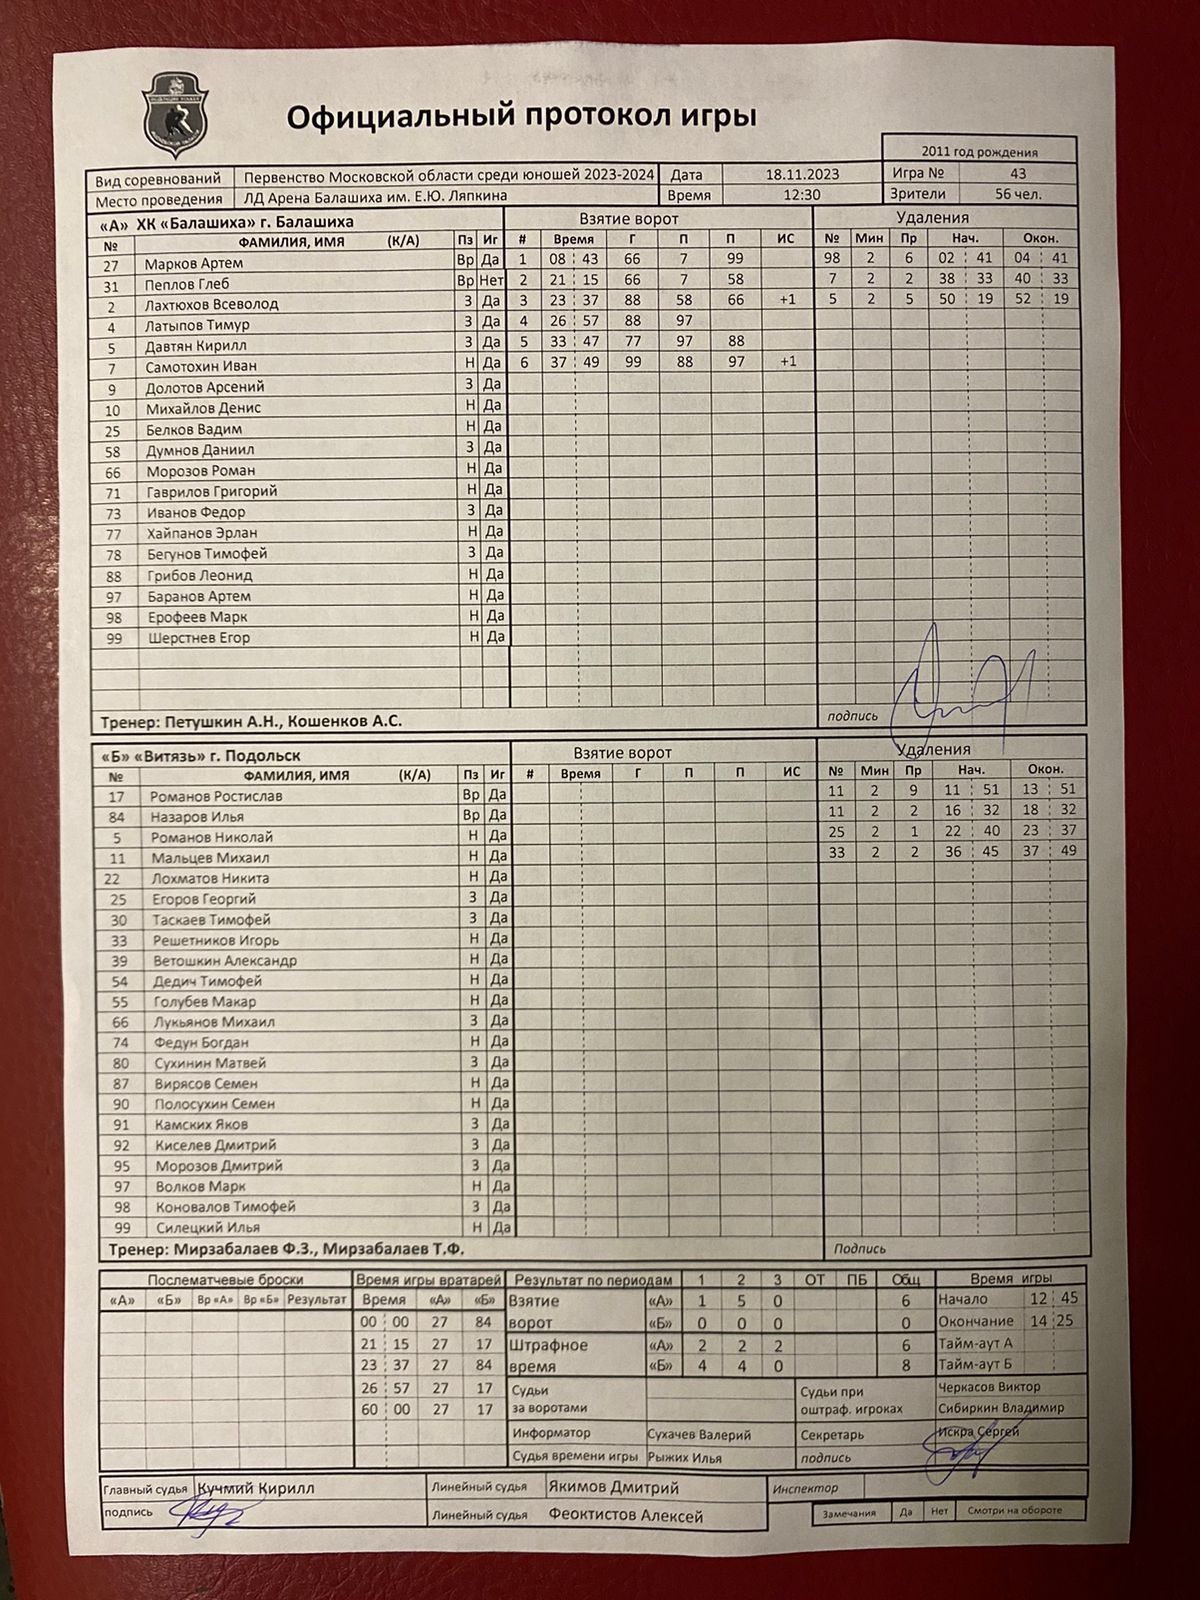 Официальный протокол игры
2011 год рождения
Вид соревнований Первенство Московской области среди юношей 2023-2024 Дата 18.11.2023 Игра № 43
Место проведения ЛД Арена Балашиха им. Е.Ю. Ляпкина Время 12:30 Зрители 56 чел.
«А» ХК «Балашиха» г. Балашиха Взятие ворот Удаления
№ ФАМИЛИЯ, ИМЯ (К/А) Пз Иг # Время Г П П ИС № Мин Пр Нач. Окон.
27 Марков Артем Вр Да 1 08 43 66 7 99 98 2 6 02 41 04 41
31 Пеплов Глеб Вр Нет 2 21 15 66 7 58 7 2 2 38 33 40 33
2 Лахтюхов Всеволод З Да 3 23 37 88 58 66 +1 5 2 5 50 19 52 19
4 Латыпов Тимур З Да 4 26 57 88 97
5 Давтян Кирилл З Да 5 33 47 77 97 88
7 Самотохин Иван Н Да 6 37 49 99 88 97 +1
9 Долотов Арсений З Да
10 Михайлов Денис Н Да
25 Белков Вадим Н Да
58 Думнов Даниил З Да
66 Морозов Роман Н Да
71 Гаврилов Григорий Н Да
73 Иванов Федор З Да
77 Хайпанов Эрлан Н Да
78 Бегунов Тимофей З Да
88 Грибов Леонид Н Да
97 Баранов Артем Н Да
98 Ерофеев Марк Н Да
99 Шерстнев Егор Н Да
Тренер: Петушкин А.Н., Кошенков А.С. подпись
«Б» «Витязь» г. Подольск Взятие ворот Удаления
№ ФАМИЛИЯ, ИМЯ (К/А) Пз Иг # Время Г П П ИС № Мин Пр Нач. Окон.
17 Романов Ростислав Вр Да 11 2 9 11 51 13 51
84 Назаров Илья Вр Да 11 2 2 16 32 18 32
5 Романов Николай Н Да 25 2 1 22 40 23 37
11 Мальцев Михаил Н Да 33 2 2 36 45 37 49
22 Лохматов Никита Н Да
25 Егоров Георгий З Да
30 Таскаев Тимофей З Да
33 Решетников Игорь Н Да
39 Ветошкин Александр Н Да
54 Дедич Тимофей Н Да
55 Голубев Макар Н Да
66 Лукьянов Михаил З Да
74 Федун Богдан Н Да
80 Сухинин Матвей З Да
87 Вирясов Семен Н Да
90 Полосухин Семен Н Да
91 Камских Яков З Да
92 Киселев Дмитрий З Да
95 Морозов Дмитрий З Да
97 Волков Марк Н Да
98 Коновалов Тимофей З Да
99 Силецкий Илья Н Да
Тренер: Мирзабалаев Ф.З., Мирзабалаев Т.Ф. Подпись
Послематчевые броски Время игры вратарей Результат по периодам 1 2 3 ОТ ПБ Общ Время игры
«А» «Б» Вр «А» Вр «Б» Результат Время «А» «Б» Взятие «А» 1 5 0 6 Начало 12 45
00 00 27 84 ворот «Б» 0 0 0 0 Окончание 14 25
21 15 27 17 Штрафное «А» 2 2 2 6 Тайм-аут А
23 37 27 84 время «Б» 4 4 0 8 Тайм-аут Б
26 57 27 17 Судьи Судьи при Черкасов Виктор
60 00 27 17 за воротами оштраф. игроках Сибиркин Владимир
Информатор Сухачев Валерий Секретарь Искра Сергей
Судья времени игры Рыжих Илья подпись
Главный судья Кучмий Кирилл Линейный судья Якимов Дмитрий Инспектор
подпись Линейный судья Феоктистов Алексей Замечания Да Нет Смотри на обороте